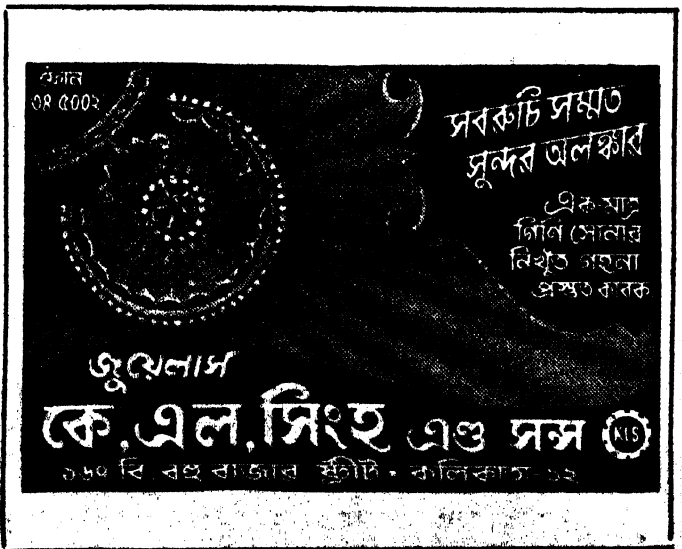 ফোন
৩৪ ৫০০২
সবরুচি সম্মত
সুন্দর অলঙ্কার
একমাত্র
গিণি সোনার
নিখুঁত গহনা
প্রস্তুত কারক
জুয়েলার্স
কে.এল.সিংহ এণ্ড সন্স
KLS
বি. বহু বাজার ষ্ট্রীট • কলিকাতা-১২